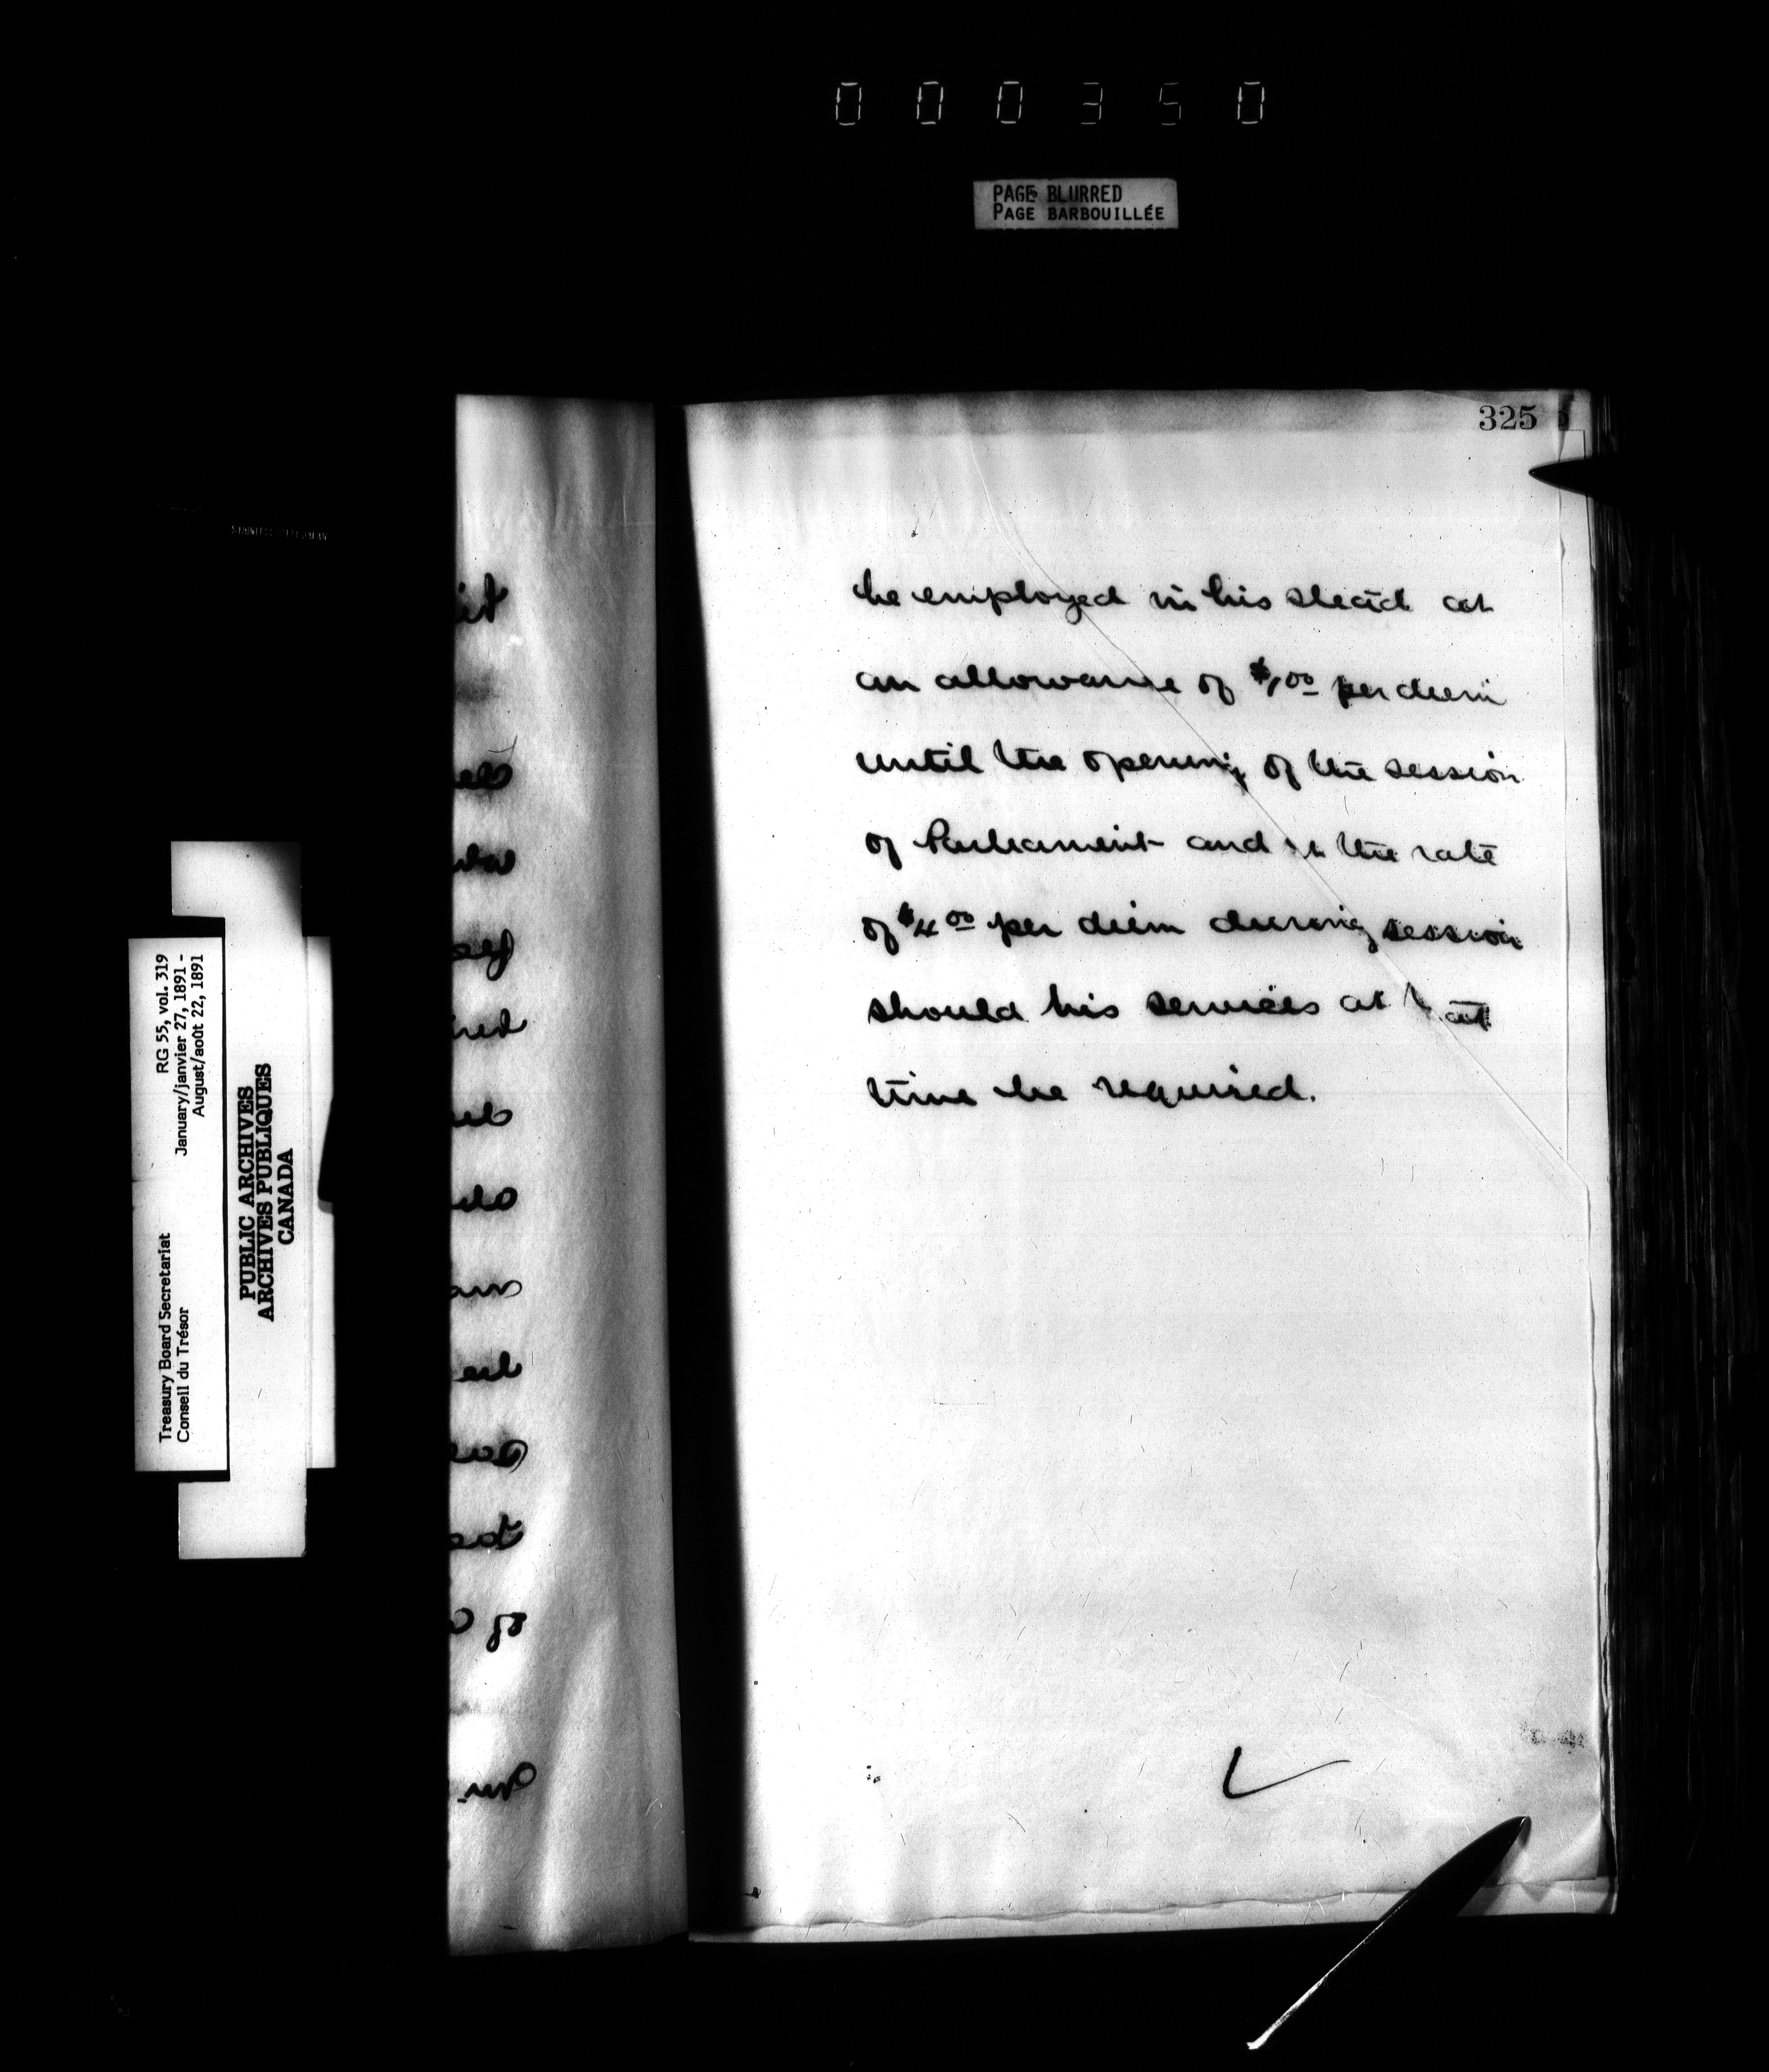 000350
PAGE BLURRED
PAGE BARBOUILLÉE
325
be employed in his stead at
an allowance of $1.00 per diem
until the opening of the session
of Parliament and at the rate
of $4.00 per diem during session
should his services at that
time be required.
Treasury Board Secretariat RG 55, vol. 319
Conseil du Trésor January/janvier 27, 1891 -
August/août 22, 1891
PUBLIC ARCHIVES
ARCHIVES PUBLIQUES
CANADA